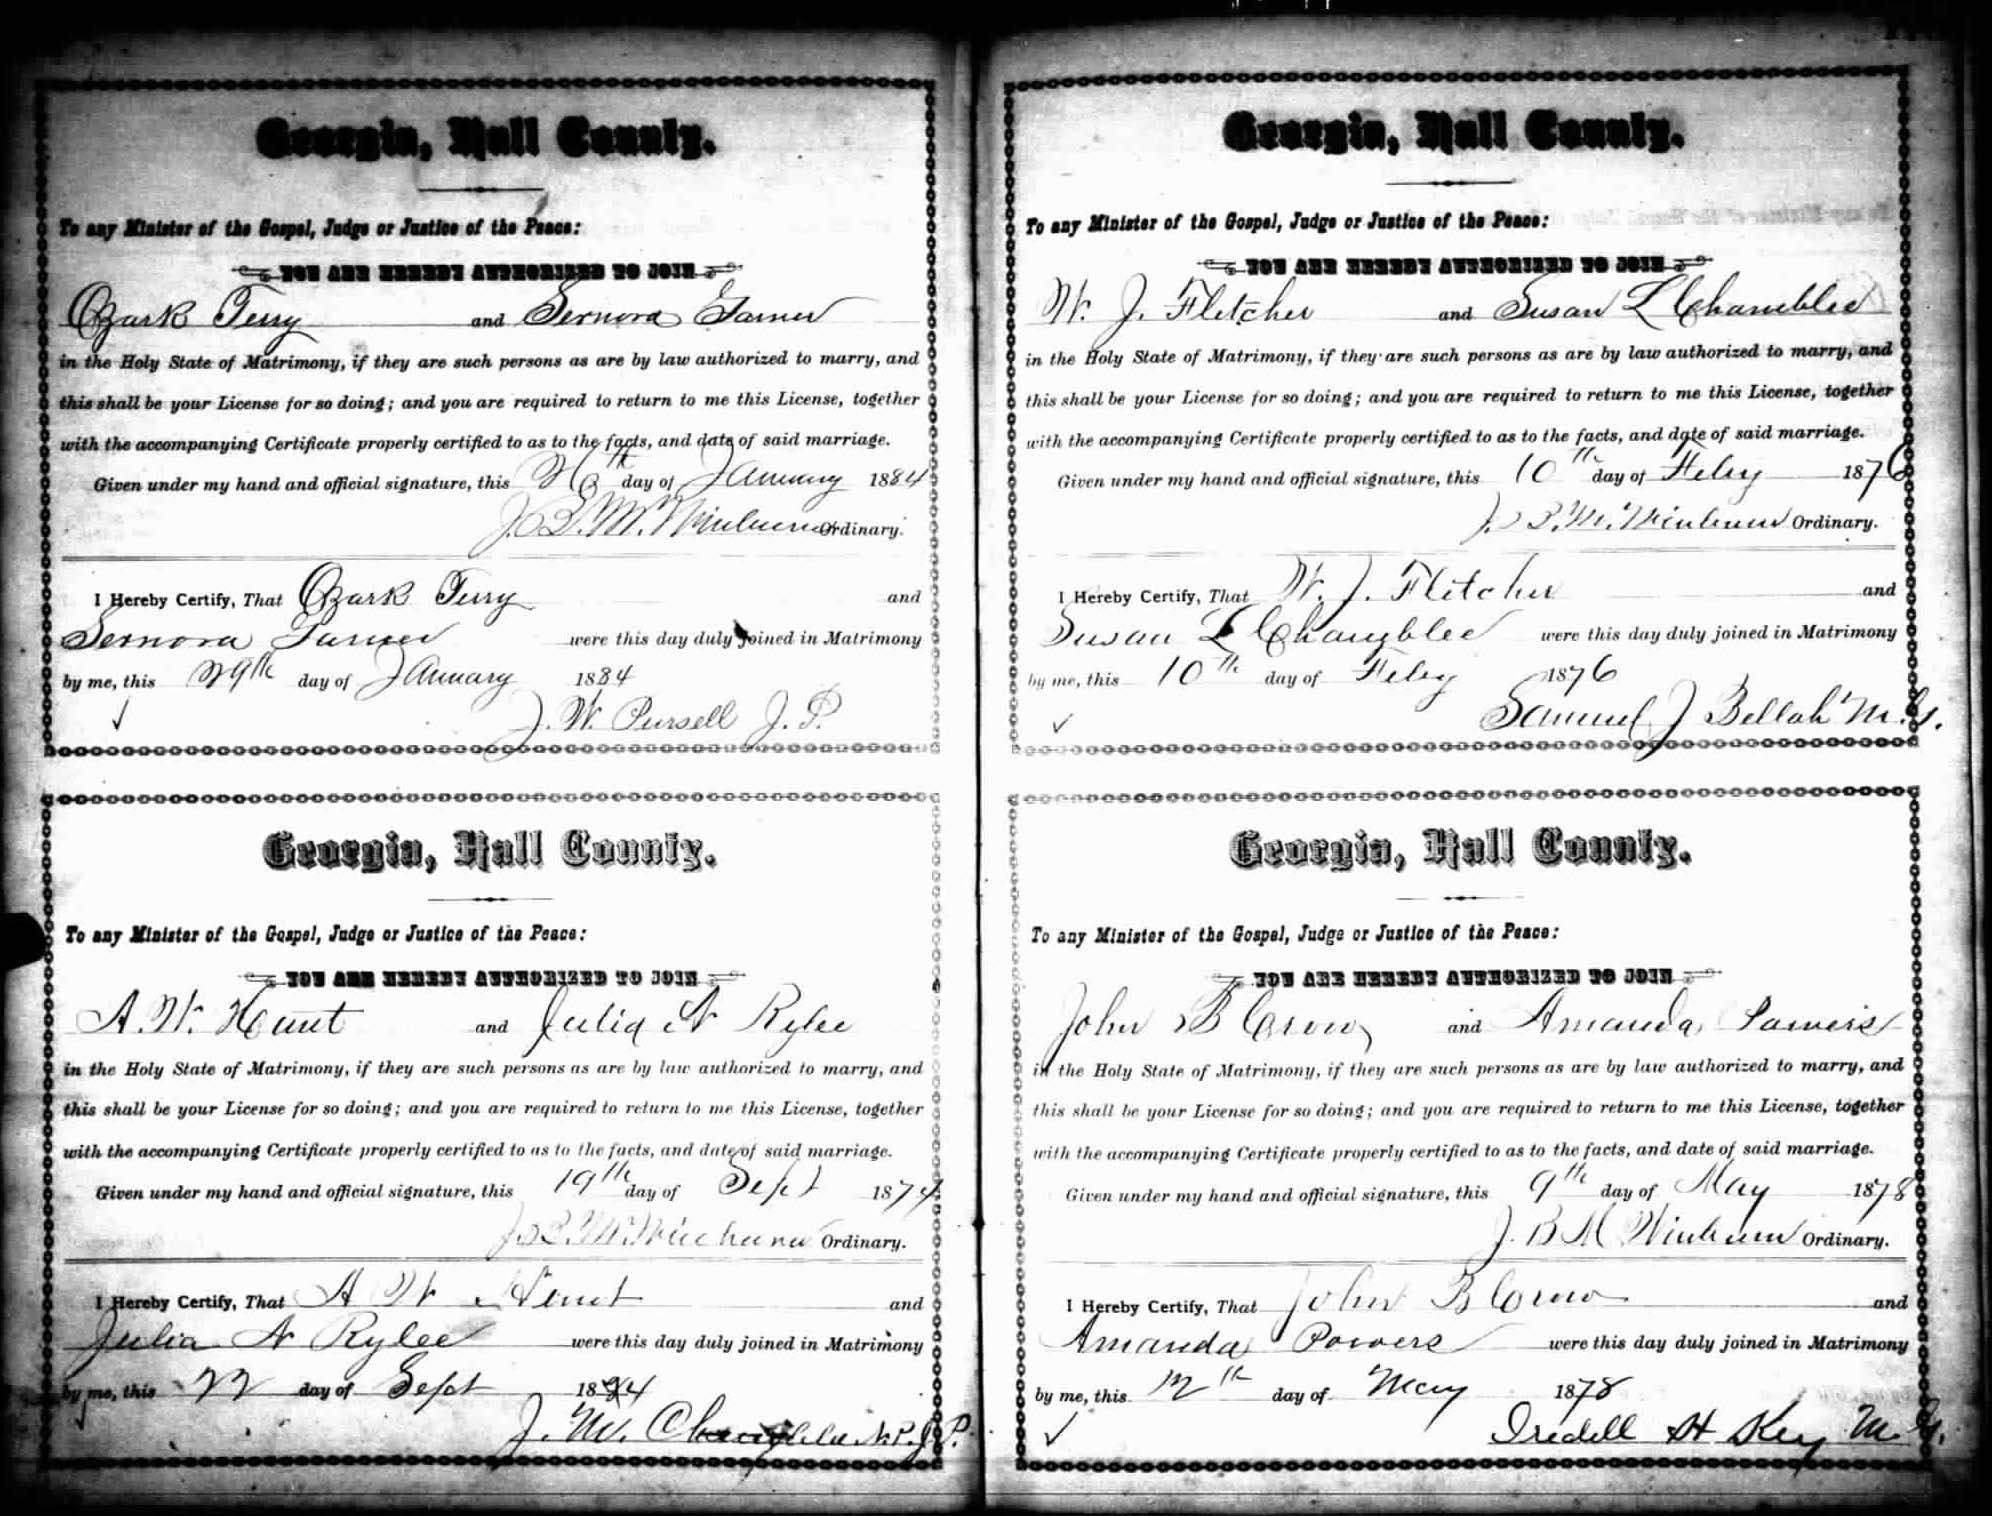 Georgia, Hall County.
To any Minister of the Gospel, Judge or Justice of the Peace:
YOU ARE HEREBY AUTHORIZED TO JOIN
Ozark Terry and Sernora Garner
in the Holy State of Matrimony, if they are such persons as are by law authorized to marry, and
this shall be your License for so doing; and you are required to return to me this License, together
with the accompanying Certificate properly certified to as to the facts, and date of said marriage.
Given under my hand and official signature, this 26th day of January 1884
J. B. M. Winburn Ordinary.
I Hereby Certify, That Ozark Terry and
Sernora Garner were this day duly joined in Matrimony
by me, this 29th day of January 1884
J. W. Pursell J. P.
Georgia, Hall County.
To any Minister of the Gospel, Judge or Justice of the Peace:
YOU ARE HEREBY AUTHORIZED TO JOIN
A. W. Hunt and Julia N Rylee
in the Holy State of Matrimony, if they are such persons as are by law authorized to marry, and
this shall be your License for so doing; and you are required to return to me this License, together
with the accompanying Certificate properly certified to as to the facts, and date of said marriage.
Given under my hand and official signature, this 19th day of Sept 1874
J. B. M. Winburn Ordinary.
I Hereby Certify, That A W Hunt and
Julia N Rylee were this day duly joined in Matrimony
by me, this 22 day of Sept 18 4
J. M. Chamblee N.P. J P.
Georgia, Hall County.
To any Minister of the Gospel, Judge or Justice of the Peace:
YOU ARE HEREBY AUTHORIZED TO JOIN
W. J. Fletcher and Susan L Chamblee
in the Holy State of Matrimony, if they are such persons as are by law authorized to marry, and
this shall be your License for so doing; and you are required to return to me this License, together
with the accompanying Certificate properly certified to as to the facts, and date of said marriage.
Given under my hand and official signature, this 10th day of Feby 1876
J. B. M. Winburn Ordinary.
I Hereby Certify, That W. J. Fletcher and
Susan L Chamblee were this day duly joined in Matrimony
by me, this 10th day of Feby 1876
Samuel J Bellah M. G.
Georgia, Hall County.
To any Minister of the Gospel, Judge or Justice of the Peace:
YOU ARE HEREBY AUTHORIZED TO JOIN
John B Crow and Amanda Powers
in the Holy State of Matrimony, if they are such persons as are by law authorized to marry, and
this shall be your License for so doing; and you are required to return to me this License, together
with the accompanying Certificate properly certified to as to the facts, and date of said marriage.
Given under my hand and official signature, this 9th day of May 1878
J. B M Winburn Ordinary.
I Hereby Certify, That John B Crow and
Amanda Powers were this day duly joined in Matrimony
by me, this 12th day of May 1878
Iredell H Key M. G.